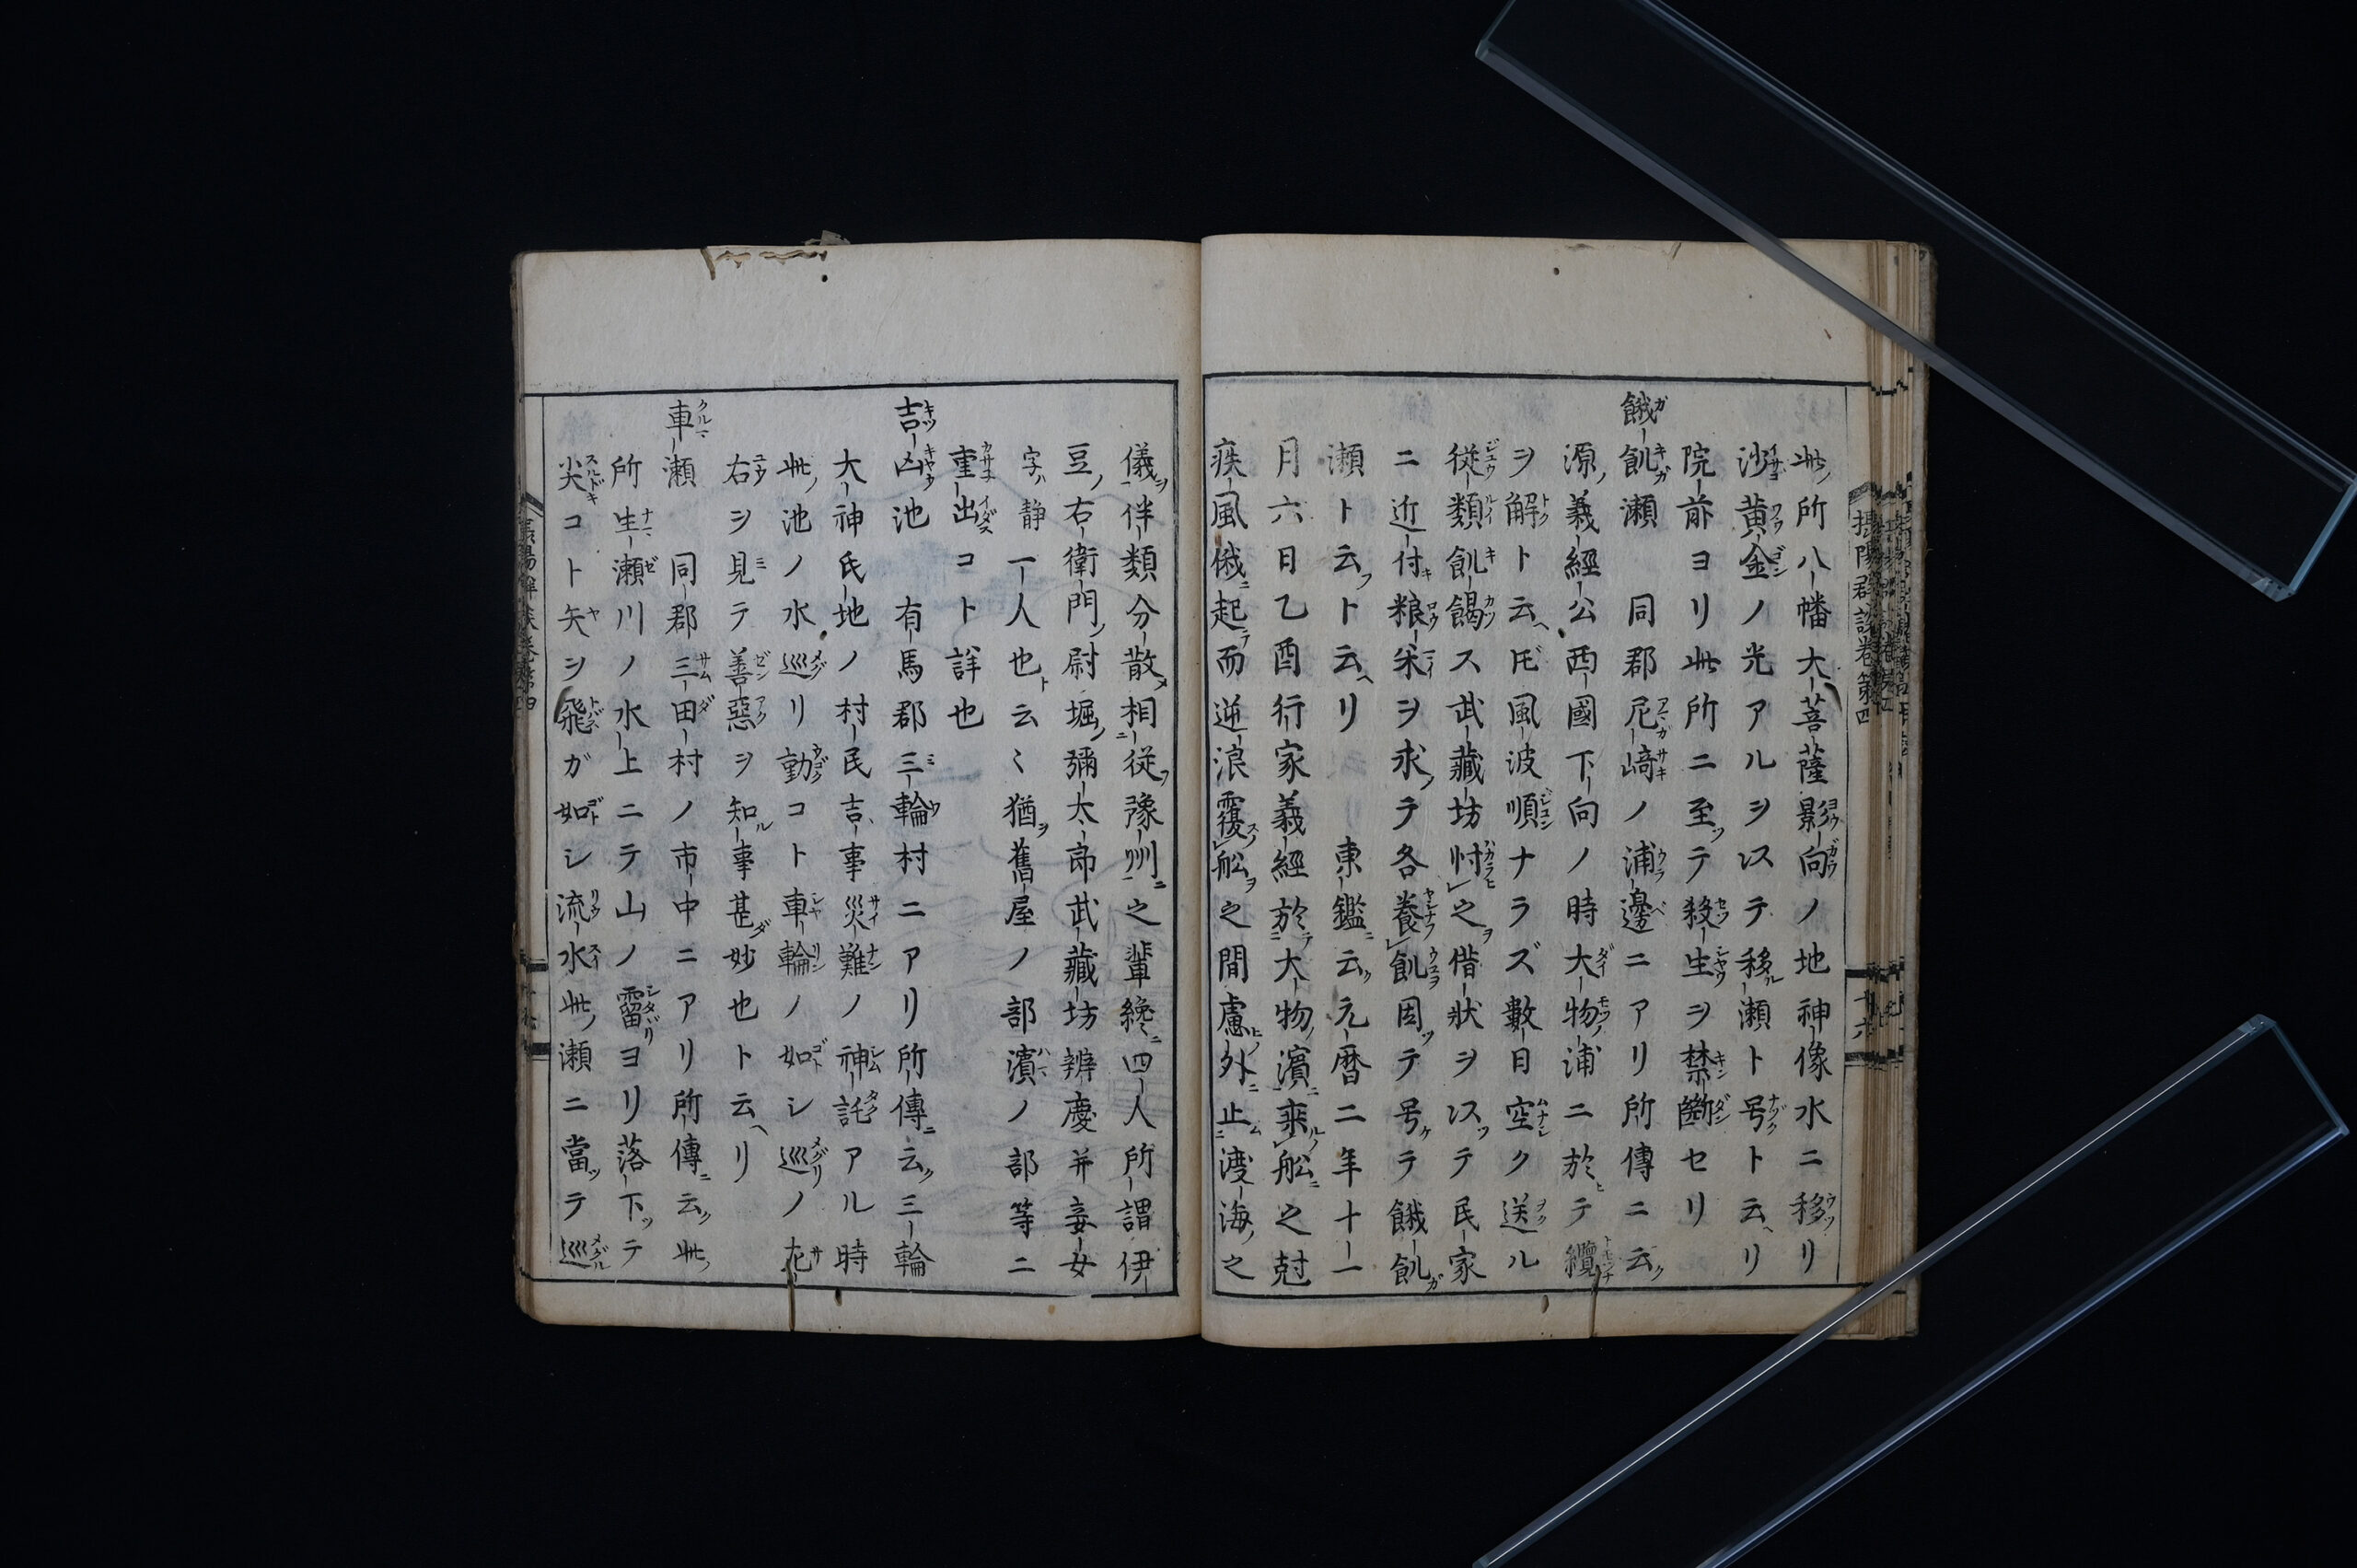 此所八幡大菩薩影向ノ地神像水ニ移リ
沙黄金ノ光アルヲ以テ移瀬ト号ト云リ
院前ヨリ此所ニ至テ殺生ヲ禁斷セリ
餓飢瀬　同郡尼﨑ノ浦邊ニアリ所傳ニ云
源義經公西國下向ノ時大物浦ニ於テ纜
ヲ解ト云𪜈風波順ナラズ數日空ク送ル
従類飢餲ス武藏坊忖之偕状ヲ以テ民家
ニ近付粮米ヲ求テ各養飢因テ号テ餓飢
瀬ト云ト云リ　東鑑云元暦二年十一
月六日乙酉行家義經於大物濱乗船之尅
疾風俄起而逆浪覆舩之間慮外止渡海之
儀伴類分散相従豫州之輩纔四人所謂伊
豆右衛門尉堀彌太郎武藏坊辨慶并妾女
字静一人也云〻猶舊屋ノ部濱ノ部等ニ
重出コト詳也
吉凶池　有馬郡三輪村ニアリ所傳云三輪
大神氏地ノ村民吉事災難ノ神託アル時
此池ノ水巡リ動コト車輪ノ如シ巡ノ左
右ヲ見テ善惡ヲ知事甚妙也ト云リ
車瀬　同郡三田村ノ市中ニアリ所傳云此
所生瀬川ノ水上ニテ山ノ霤ヨリ落下テ
尖コト矢ヲ飛ガ如シ流水此瀬ニ當テ巡
攝陽郡談巻第四
十六